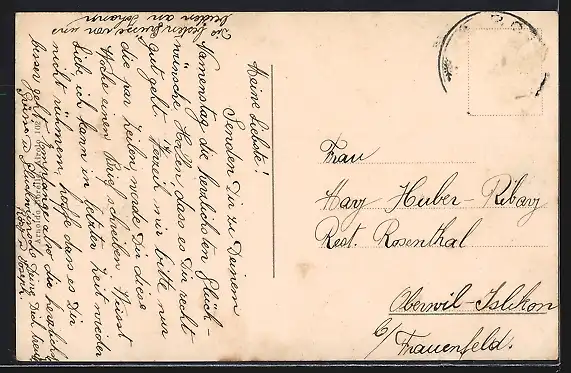 Meine Liebste!
Senden Dir zu Deinem
Namenstag die herzlichsten Glück-
wünsche. Hoffen, dass es Dir recht
gut geht. Verzeih mir bitte nur
die par Zeilen, werde Dir diese
Woche einen Brief schreiben. Weisst
Lieb, ich kann in letzter Zeit wieder
nicht rühmen, hoffe dass es Dir
besser geht. Empfange also die herzlichst
Grüsse
Die besten Grüsse von uns
beiden an Johann
Frau
May Huber-Ribary
Rest. Rosenthal
Oberwil-Islikon
b/ Frauenfeld.